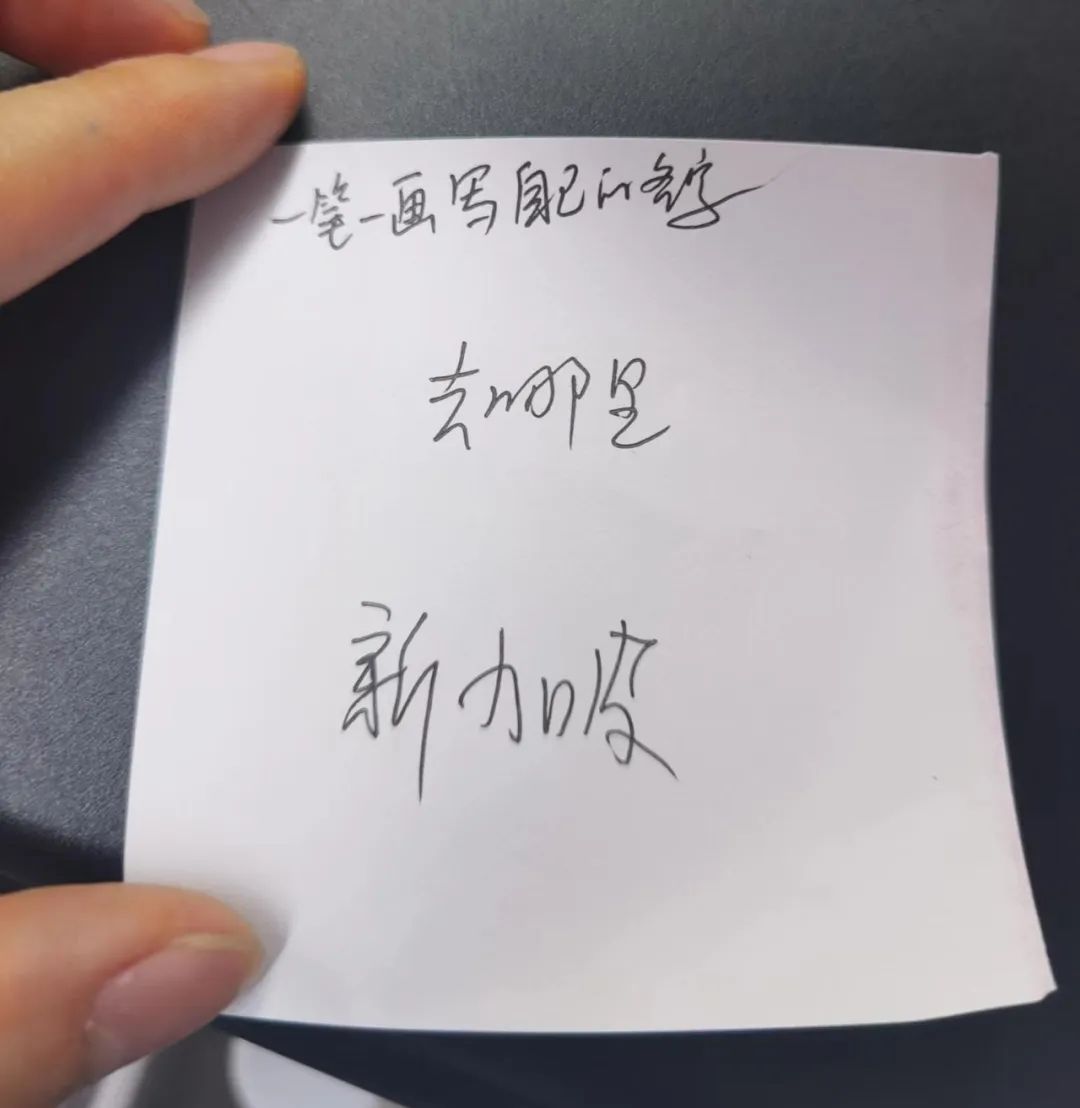 一笔一画写自己的名字
去哪里
新加坡